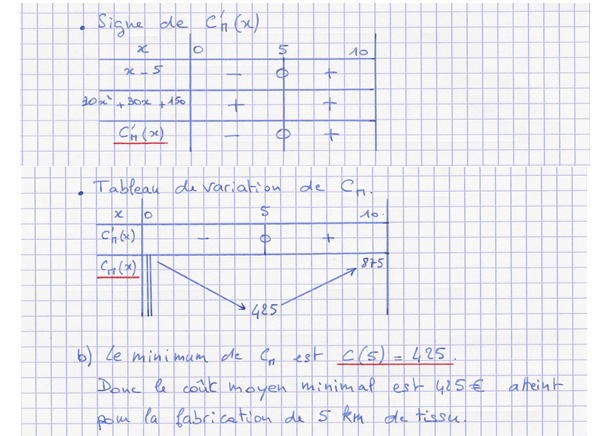 • Signe de C'ₘ(x)
x 0 5 10
x - 5 - 0 +
30x² + 30x + 150 + +
C'ₘ(x) - 0 +
• Tableau de variation de Cₘ.
x 0 5 10
C'ₘ(x) - 0 +
Cₘ(x) 425 875
b) Le minimum de Cₘ est C(5) = 425.
Donc le coût moyen minimal est 425 € atteint
pour la fabrication de 5 km de tissu.